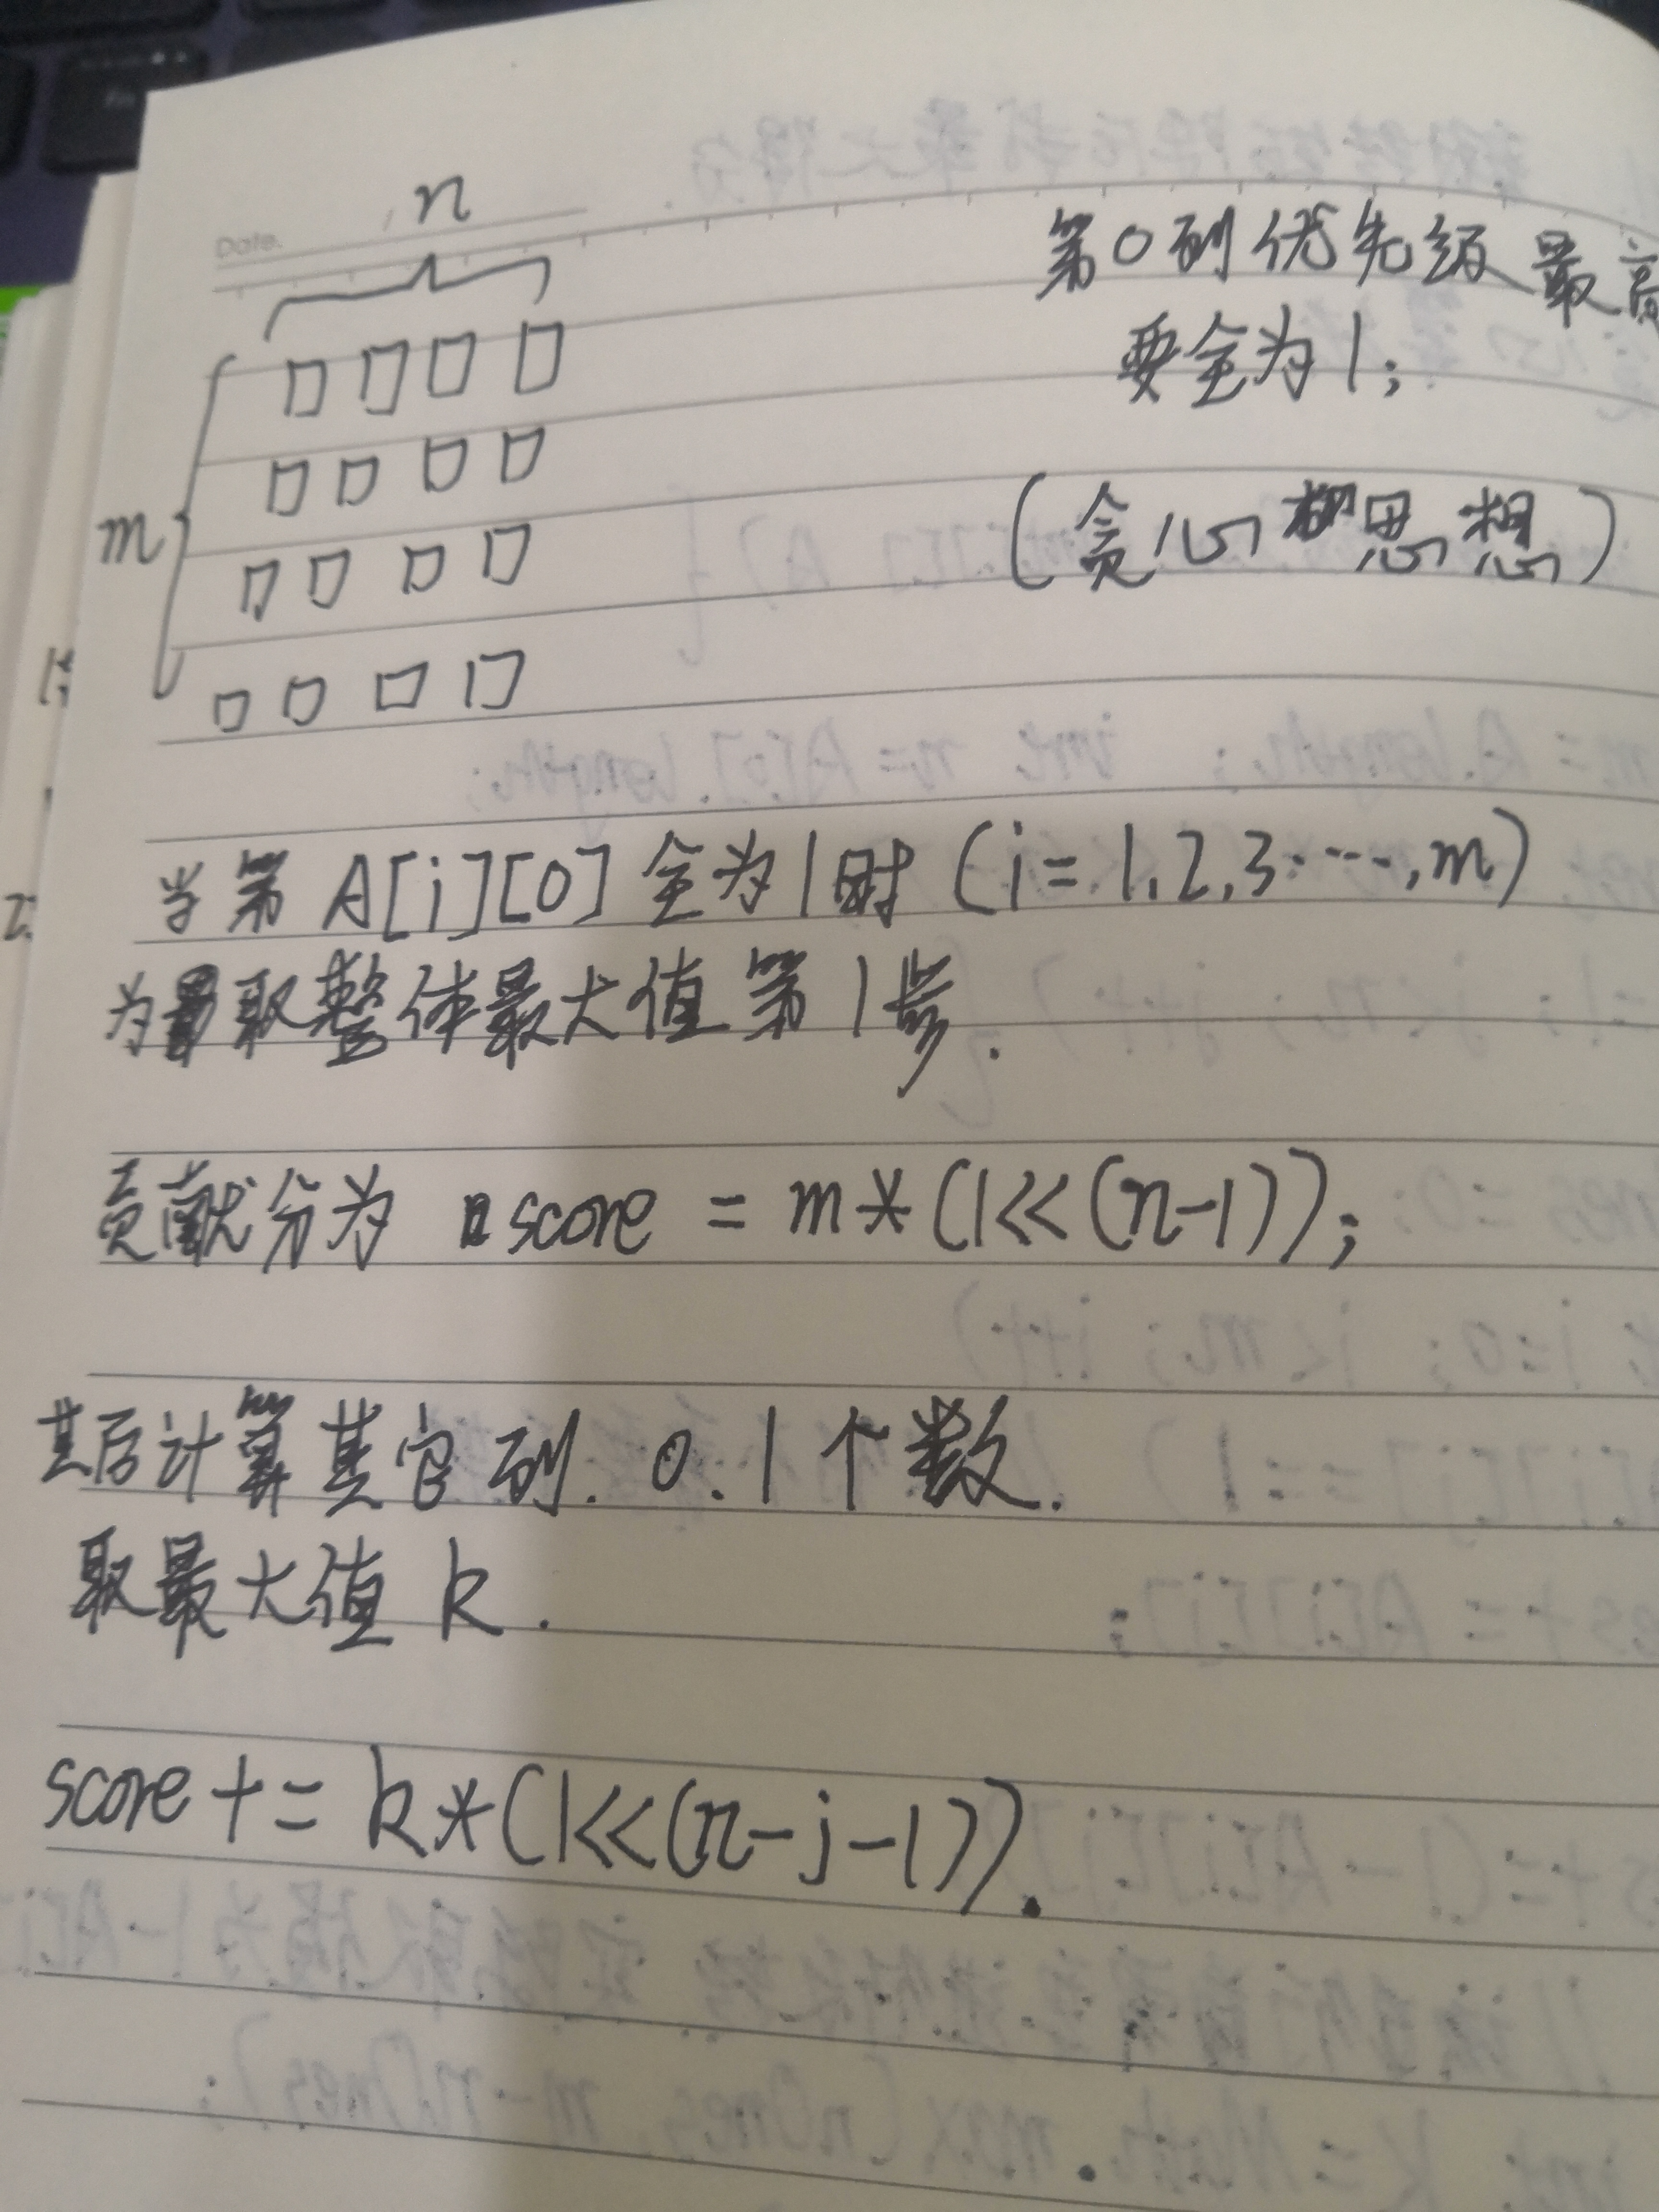 Date.
n
m
第0列优先级最高
要全为1;
(贪心思想)
当第 A[i][0] 全为1时 (i=1,2,3……,m)
为取整体最大值第1步.
贡献分为 score = m*(1<<(n-1));
其后计算其它列. 0.1个数.
取最大值 k.
score += k*(1<<(n-j-1)).